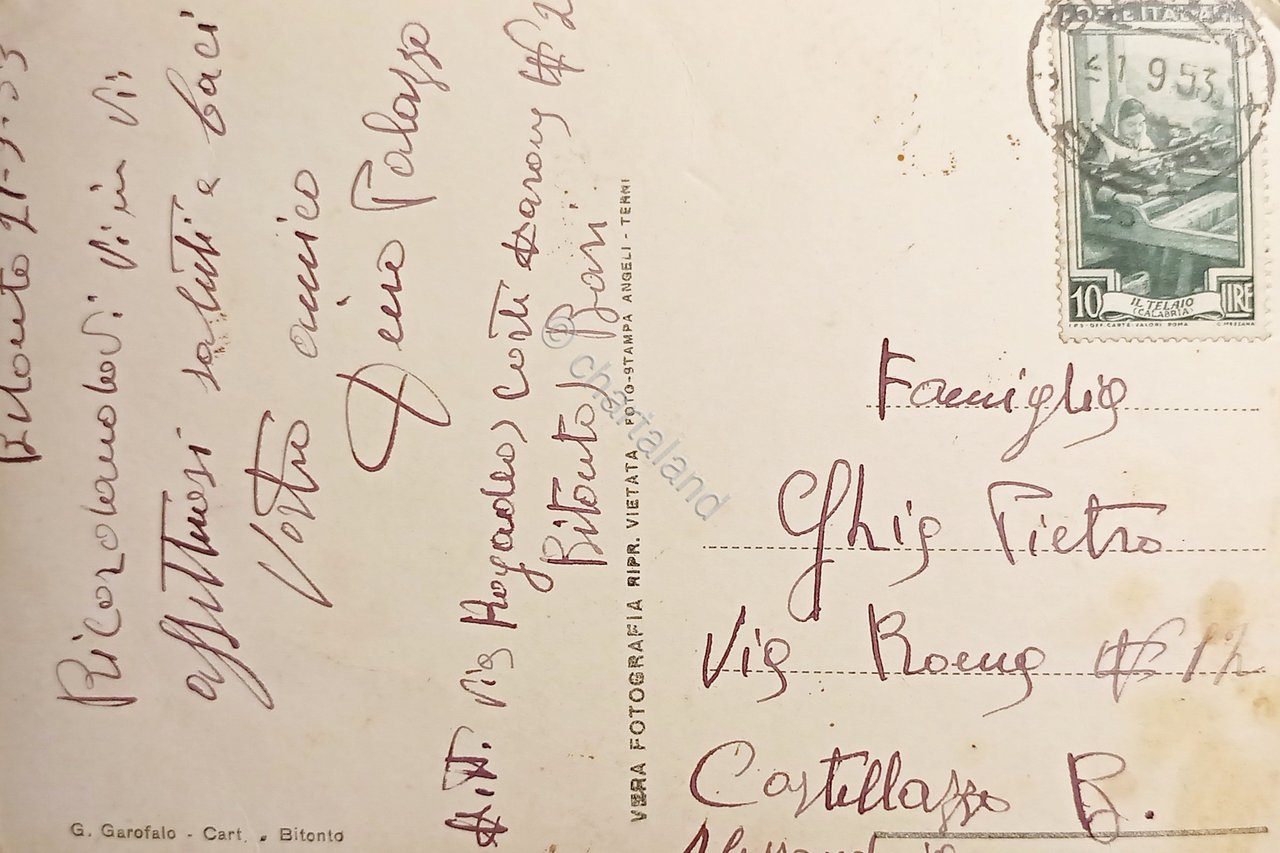 Bitonto 21-9-53
Ricordandovi vi invio
affettuosi saluti e baci
Vostro amico
Palazzo
Via Rogadeo, corte N 2
Bitonto, Bari
VERA FOTOGRAFIA RIPR. VIETATA FOTO-STAMPA ANGELI - TERNI
G. Garofalo - Cart. - Bitonto
POSTE ITALIANE
1 9 53
10 LIRE
IL TELAIO
(CALABRIA)
I.P.S.-OFF. CARTE-VALORI ROMA C. MEZZANA
Famiglia
Ghia Pietro
Via Roma N
Castellazzo B.
© chartaland